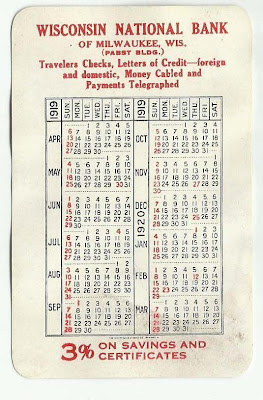 WISCONSIN NATIONAL BANK
OF MILWAUKEE, WIS.
(PABST BLDG.)
Travelers Checks, Letters of Credit—foreign
and domestic, Money Cabled and
Payments Telegraphed
1919 SUN. MON. TUE. WED. THU. FRI. SAT.
APR
1 2 3 4 5
6 7 8 9 10 11 12
13 14 15 16 17 18 19
20 21 22 23 24 25 26
27 28 29 30
MAY
1 2 3
4 5 6 7 8 9 10
11 12 13 14 15 16 17
18 19 20 21 22 23 24
25 26 27 28 29 30 31
JUN
1 2 3 4 5 6 7
8 9 10 11 12 13 14
15 16 17 18 19 20 21
22 23 24 25 26 27 28
29 30
JUL
1 2 3 4 5
6 7 8 9 10 11 12
13 14 15 16 17 18 19
20 21 22 23 24 25 26
27 28 29 30 31
AUG
1 2
3 4 5 6 7 8 9
10 11 12 13 14 15 16
17 18 19 20 21 22 23
24 25 26 27 28 29 30
31
SEP
1 2 3 4 5 6
7 8 9 10 11 12 13
14 15 16 17 18 19 20
21 22 23 24 25 26 27
28 29 30
1919 SUN. MON. TUE. WED. THU. FRI. SAT.
OCT
1 2 3 4
5 6 7 8 9 10 11
12 13 14 15 16 17 18
19 20 21 22 23 24 25
26 27 28 29 30 31
NOV
1
2 3 4 5 6 7 8
9 10 11 12 13 14 15
16 17 18 19 20 21 22
23 24 25 26 27 28 29
30
DEC
1 2 3 4 5 6
7 8 9 10 11 12 13
14 15 16 17 18 19 20
21 22 23 24 25 26 27
28 29 30 31
1920
JAN
1 2 3
4 5 6 7 8 9 10
11 12 13 14 15 16 17
18 19 20 21 22 23 24
25 26 27 28 29 30 31
FEB
1 2 3 4 5 6 7
8 9 10 11 12 13 14
15 16 17 18 19 20 21
22 23 24 25 26 27 28
29
MAR
1 2 3 4 5 6
7 8 9 10 11 12 13
14 15 16 17 18 19 20
21 22 23 24 25 26 27
28 29 30 31
3% ON SAVINGS AND
CERTIFICATES